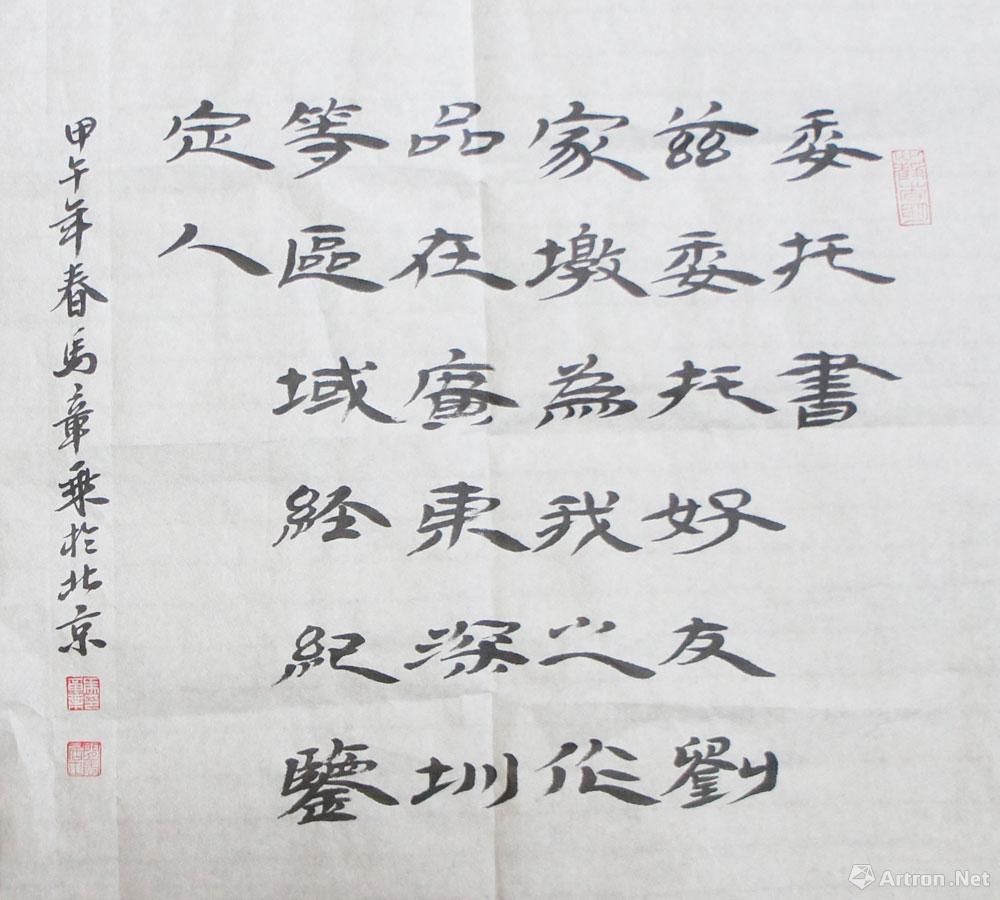 委托書
兹委托好友劉
家墩為我之作
品在廣東深圳
等區域经紀鑒
定人
甲午年春馬章乘於北京
Artron.Net